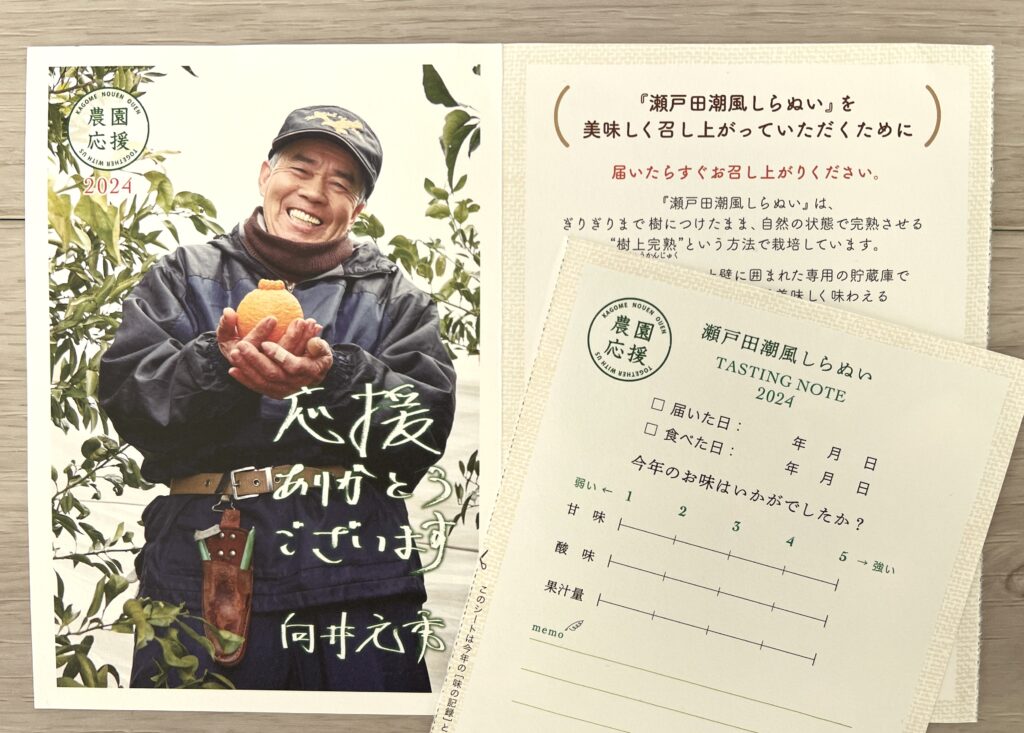 KAGOME NOUEN OUEN
農園
応援
TOGETHER WITH US
2024
応援
ありがとう
ございます
『瀬戸田潮風しらぬい』を
美味しく召し上がっていただくために
届いたらすぐお召し上がりください。
『瀬戸田潮風しらぬい』は、
ぎりぎりまで樹につけたまま、自然の状態で完熟させる
“樹上完熟”という方法で栽培しています。
うかんじゅく
土壁に囲まれた専用の貯蔵庫で
美味しく味わえる
KAGOME NOUEN OUEN
農園
応援
TOGETHER WITH US
瀬戸田潮風しらぬい
TASTING NOTE
2024
□ 届いた日： 年 月 日
□ 食べた日： 年 月 日
今年のお味はいかがでしたか？
弱い ← 1 2 3 4 5 → 強い
甘 味
酸 味
果汁量
memo
このシートは今年の［味の記録］と